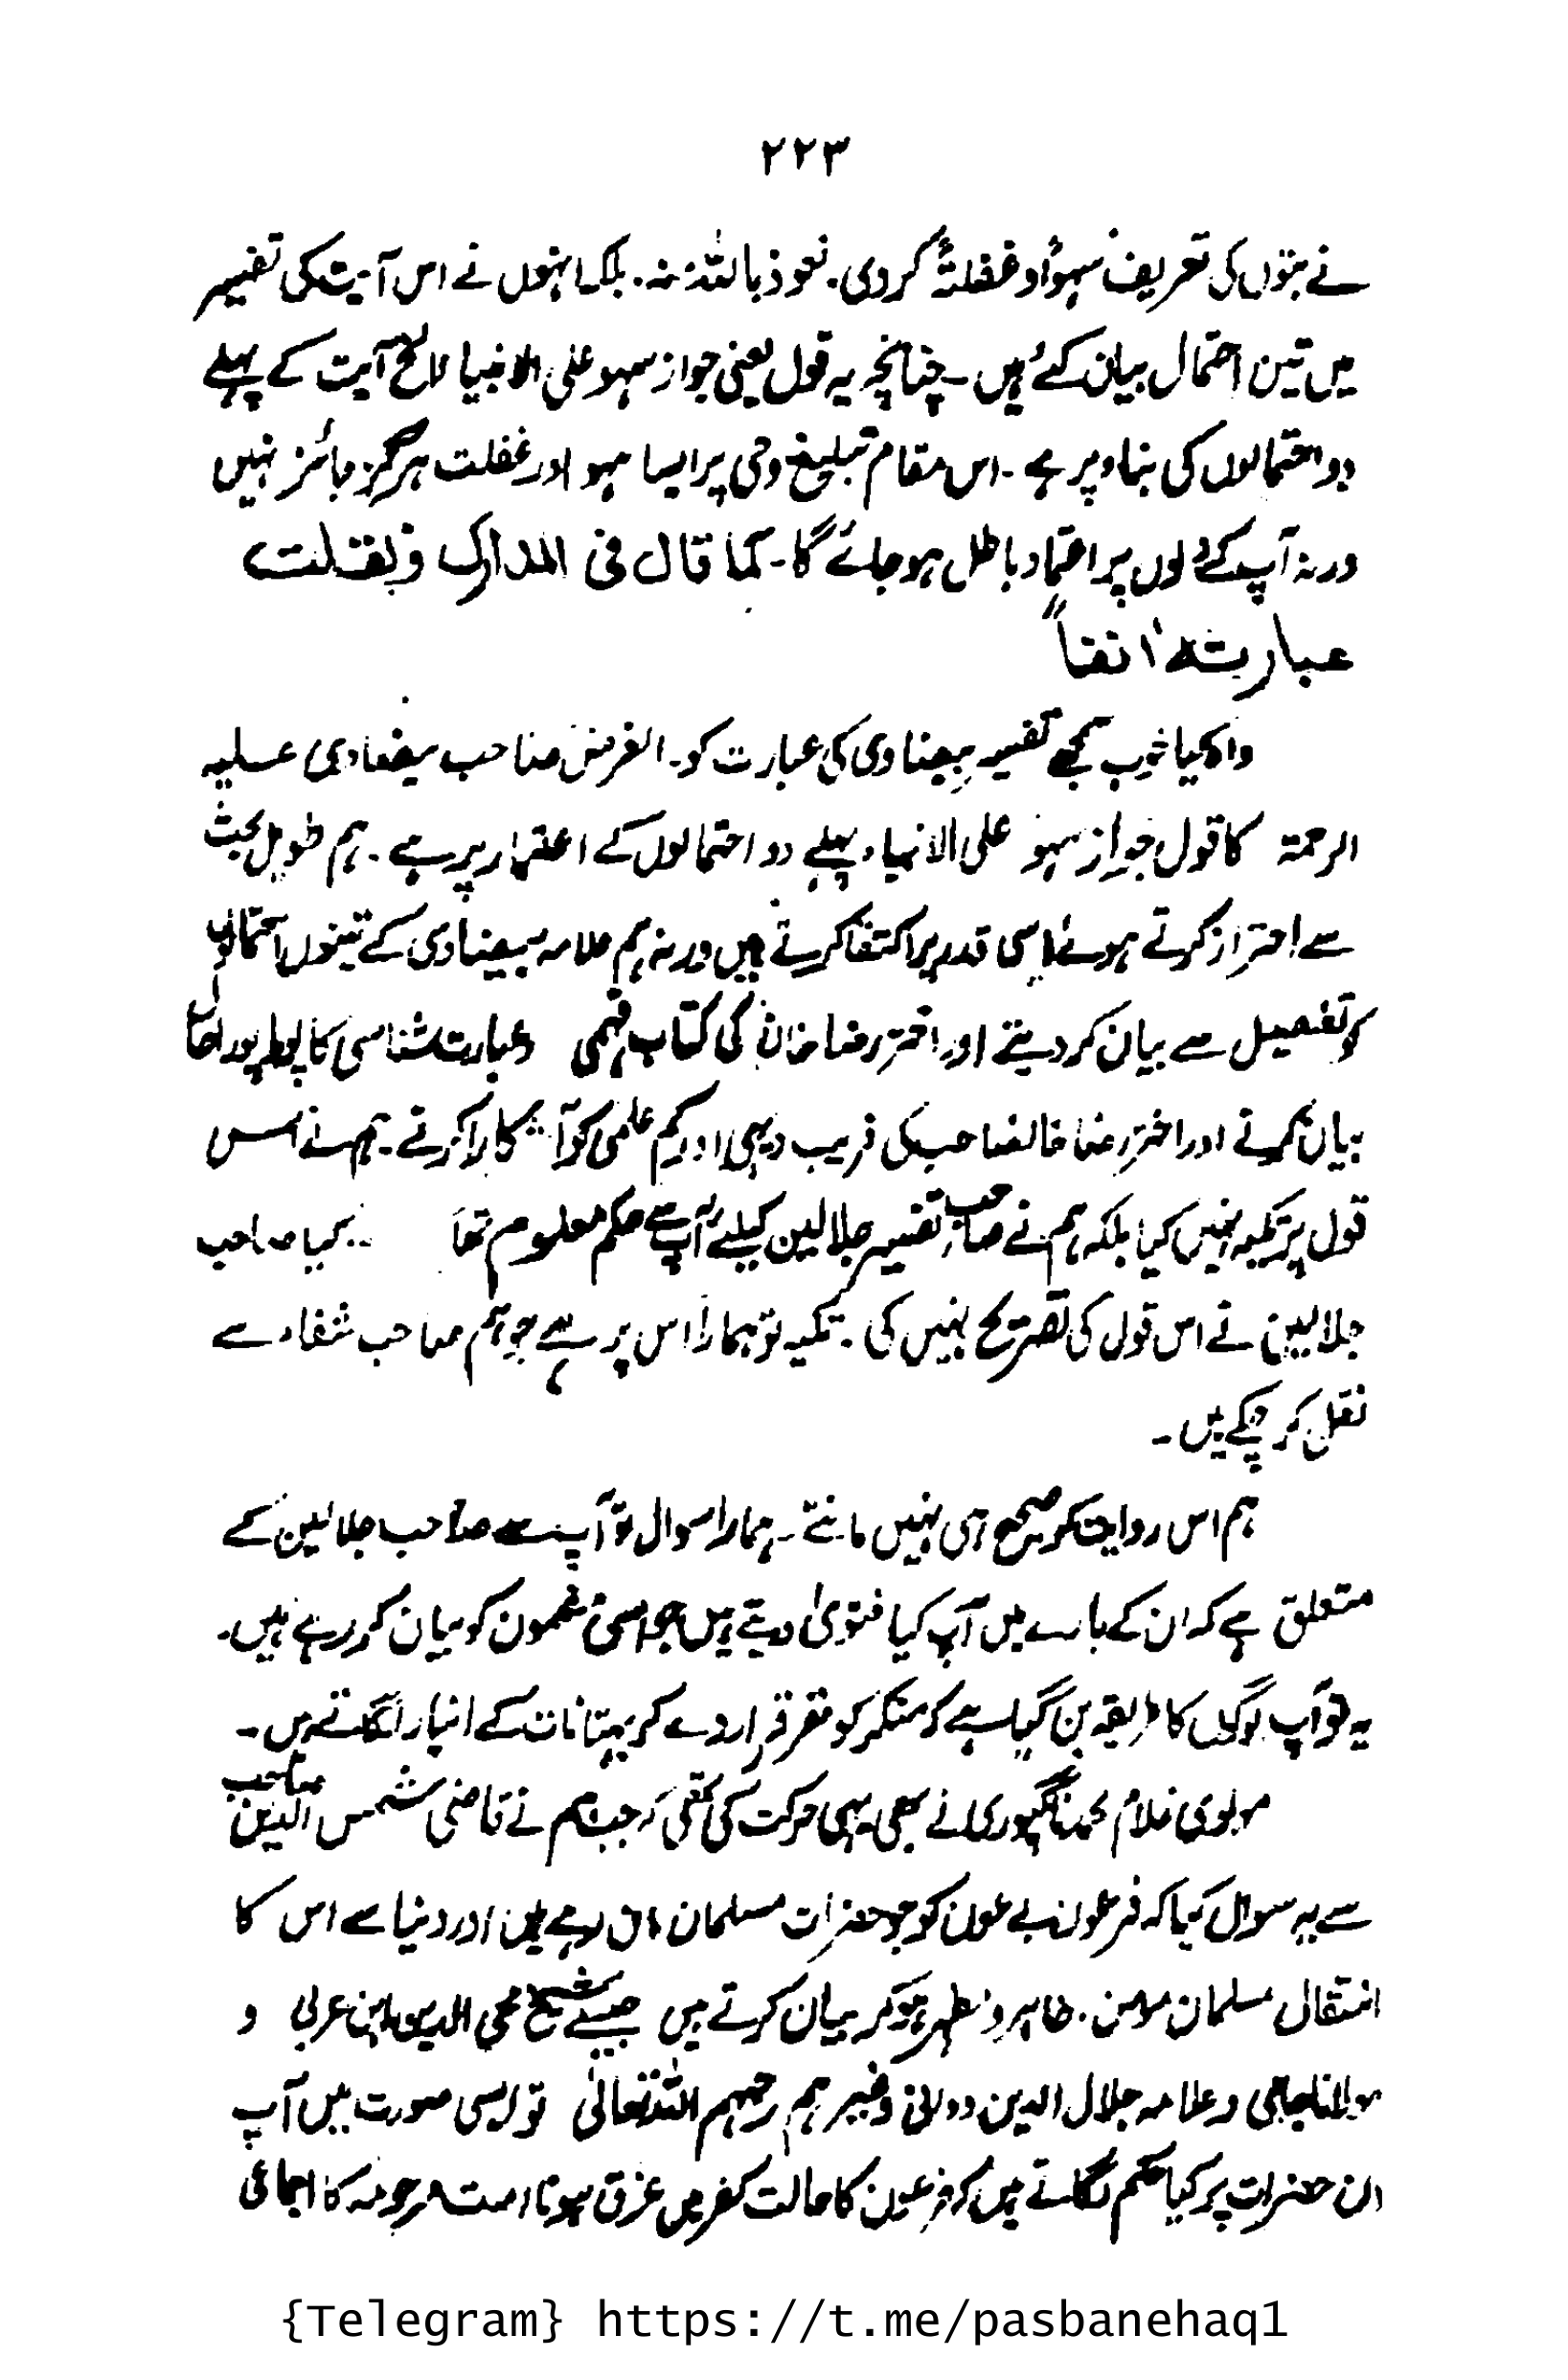 ۲۲۳
نے بتوں کی تعریف سہوًا و غفلتہً کر دی۔ نعوذ باللہ منہ۔ بلکہ انہوں نے اس آیت کی تفسیر
میں تین احتمال بیان کئے ہیں۔ چنانچہ یہ قول یعنی جواز سہو علی الانبیا لالخ آیت کے پہلے
دو احتمالوں کی بناء پر ہے۔ اس مقام تبلیغ وحی پر ایسا سہو اور غفلت ہرگز جائز نہیں
ورنہ آپ کے لوں پر اعتماد باطل ہو جائے گا۔ کما قال فی المدارک و نقلت
عبارتہ اٰنفاً"
واہ کیا خوب سمجھے تفسیر بیضاوی کی عبارت کو۔ الغرض صاحب بیضاوی علیہ
الرحمۃ کا قول جواز سہو علی الانبیاء پہلے دو احتمالوں کے اعتبار پر ہے۔ ہم طویل بحث
سے احتراز کرتے ہوئے اسی قدر پر اکتفا کرتے ہیں ورنہ ہم علامہ بیضاوی کے تینوں احتمالوں
کو تفصیل سے بیان کر دیتے اور اختر رضا خاں کی کتاب فہمی و عبارت شناسی کا پورا پورا حال
بیان کرتے اور اختر رضا خالصاحب کی فریب دہی اور کم علمی کو آشکارا کرتے۔ ہم نے اس
قول پر تکیہ نہیں کیا بلکہ ہم نے صاحب تفسیر جلالین کیلئے آپ سے حکم معلوم تھا کیا صاحب
جلالین نے اس قول کی تصریح نہیں کی۔ تکیہ تو ہمارا اس پر ہے جو ہم صاحب شفاء سے
نقل کر چکے ہیں۔
ہم اس روایت کو صحیح ہی نہیں مانتے۔ ہمارا سوال تو آپ سے صاحب جلالین کے
متعلق ہے کہ ان کے بارے میں آپ کیا فتویٰ دیتے ہیں جو اسی مضمون کو بیان کر رہے ہیں۔
یہ تو آپ لوگوں کا طریقہ بن گیا ہے کہ منکر کو مقر قرار دے کر بہتانات کے انبار لگاتے ہیں۔
مولوی غلام محمد ناگپوری نے بھی یہی حرکت کی تھی کہ جب ہم نے قاضی شمس الدین صاحب
سے یہ سوال کیا کہ فرعون بے عون کو جو حضرات مسلمان مان رہے ہیں اور دنیا سے اس کا
انتقال مسلمان مومن۔ طاہر و مطہر ہو کر بیان کرتے ہیں جیسے شیخ محی الدین ابن عربی و
مولانا جامی و علامہ جلال الدین دوانی وغیرہم رحمہم اللہ تعالٰی تو ایسی صورت میں آپ
ان حضرات پر کیا حکم لگاتے ہیں کہ فرعون کا حالت کفر میں غرق ہونا امت مرحومہ کا اجماعی
{Telegram} https://t.me/pasbanehaq1